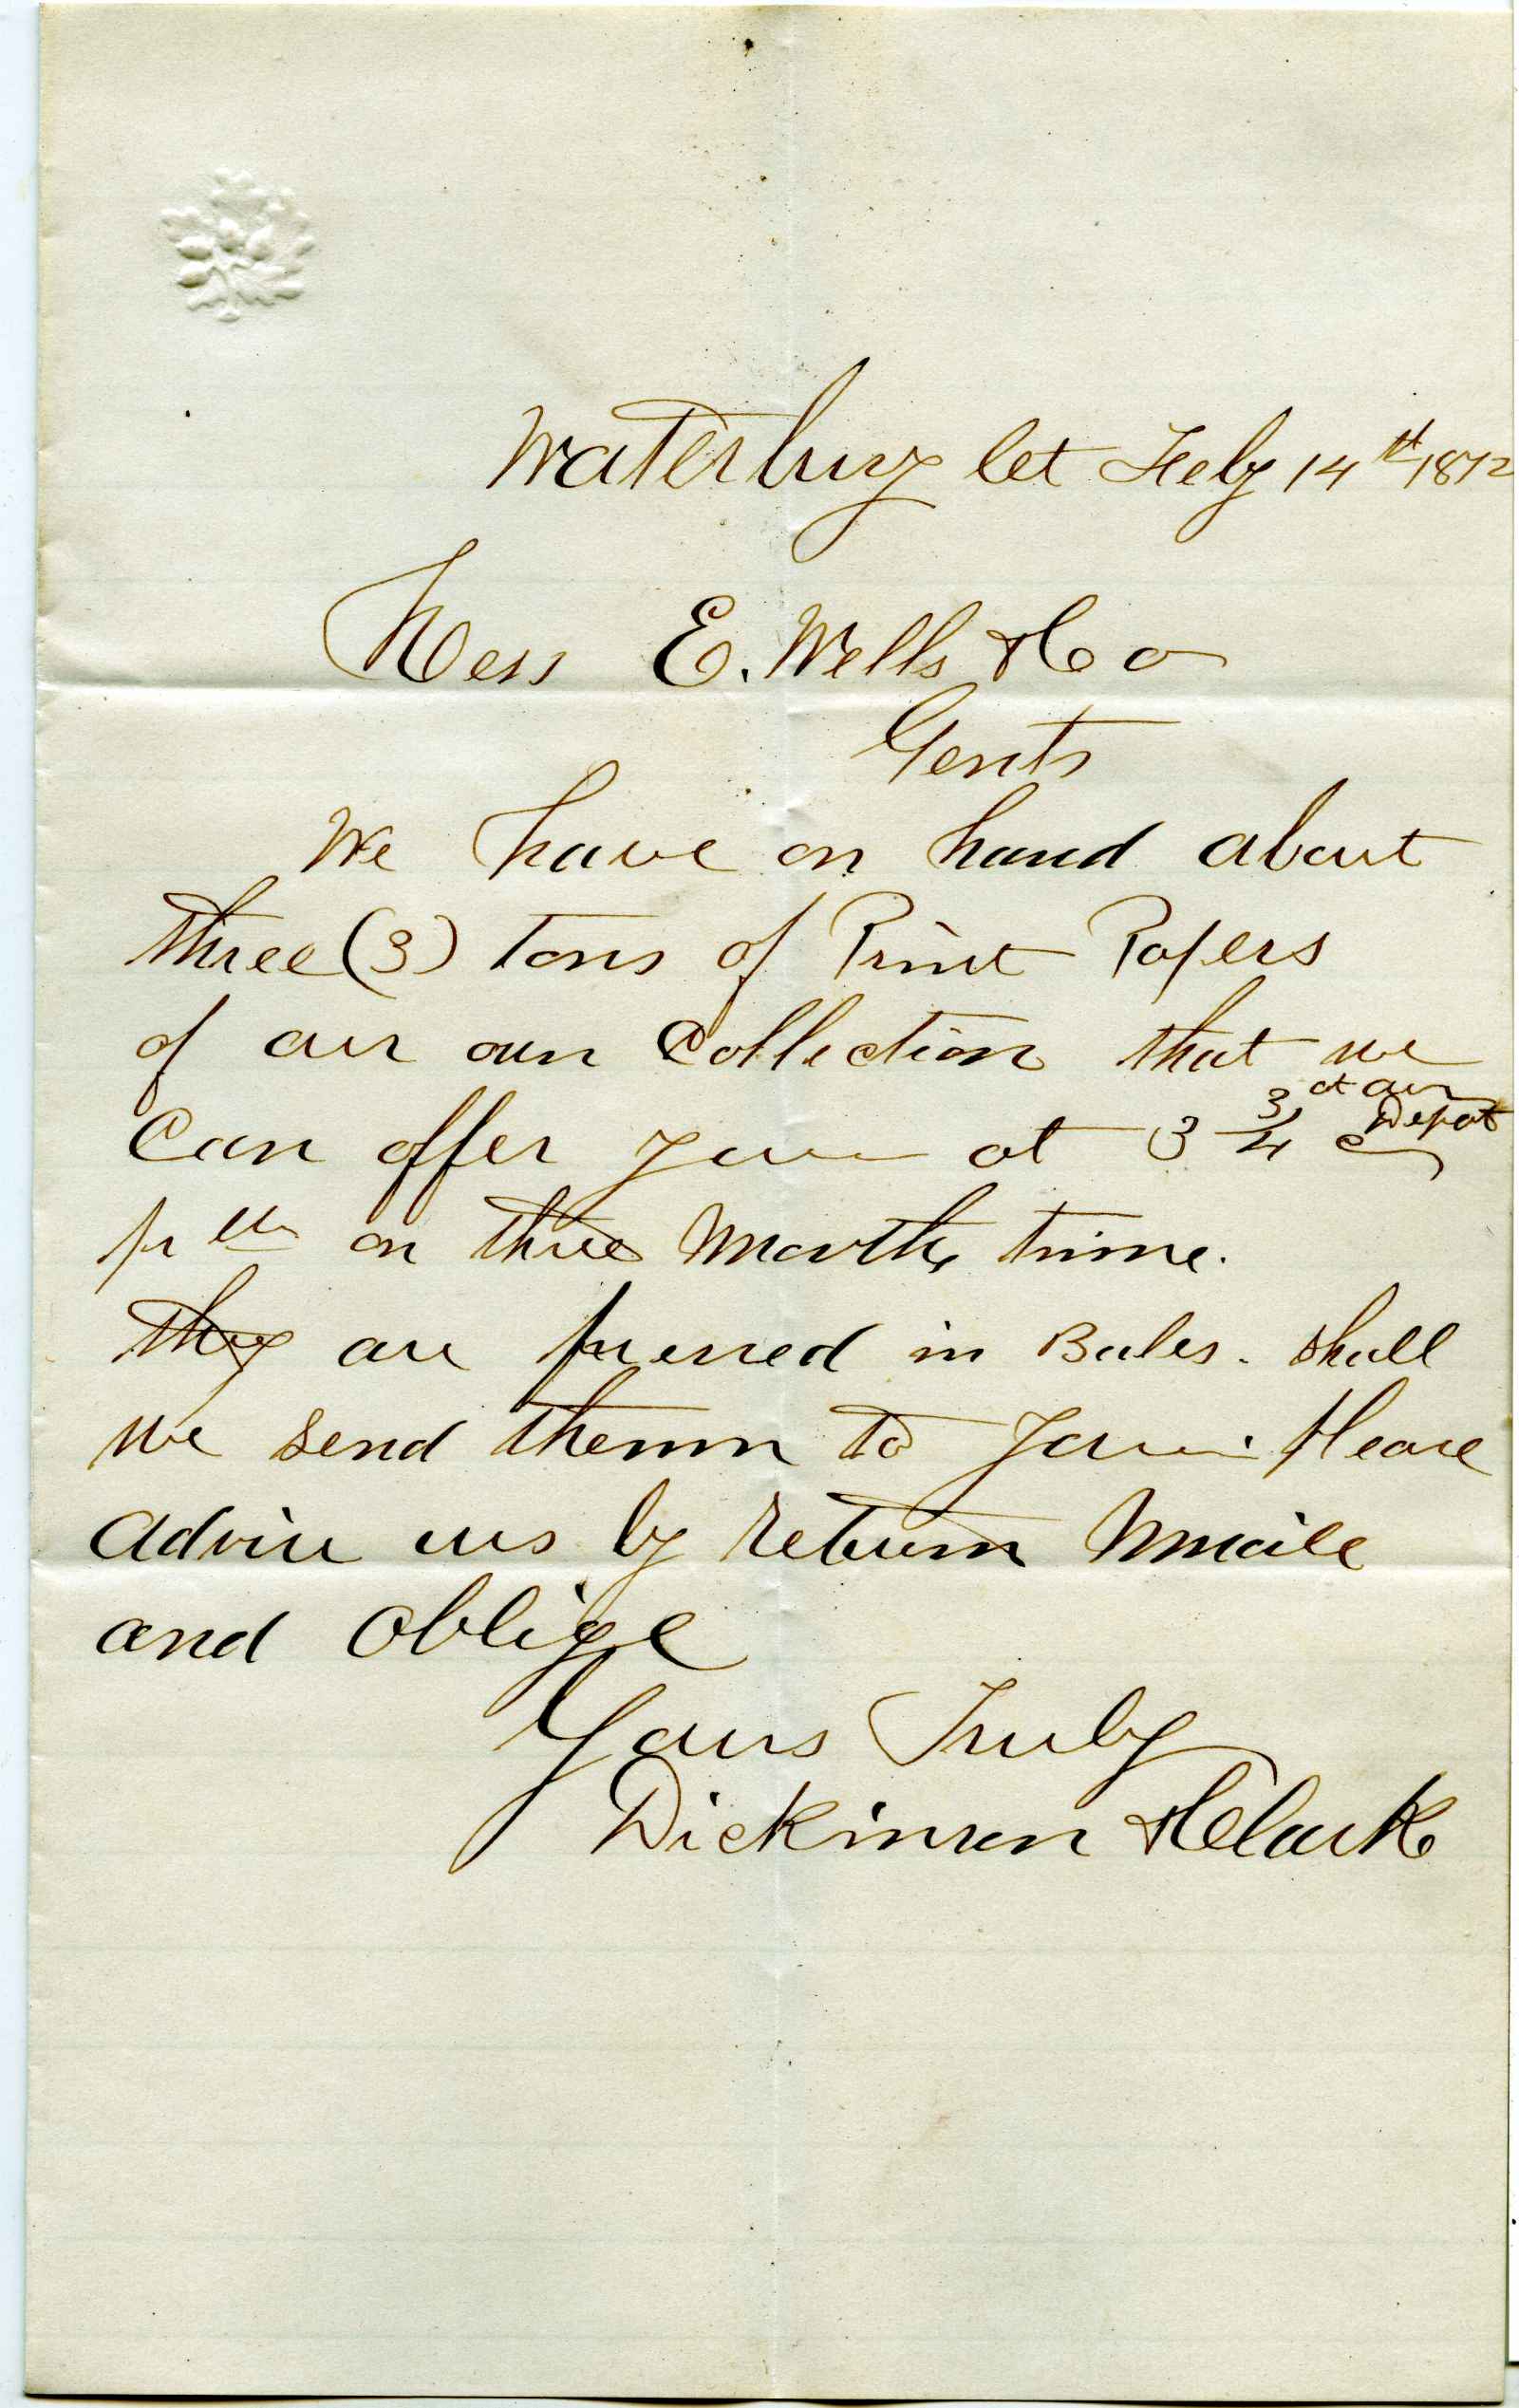 Waterbury Ct Feby 14th 1872
Mess E. Wells & Co
Gents
We have on hand about
three (3) Tons of Print Papers
of our own Collection that we
Can offer you at 3 3/4 c at our Depot
pr lb on three Months time.
they are pressed in Bales. Shall
we send them to you. Please
advise us by return Mail
and oblige
Yours Truly
Dickinson & Clark